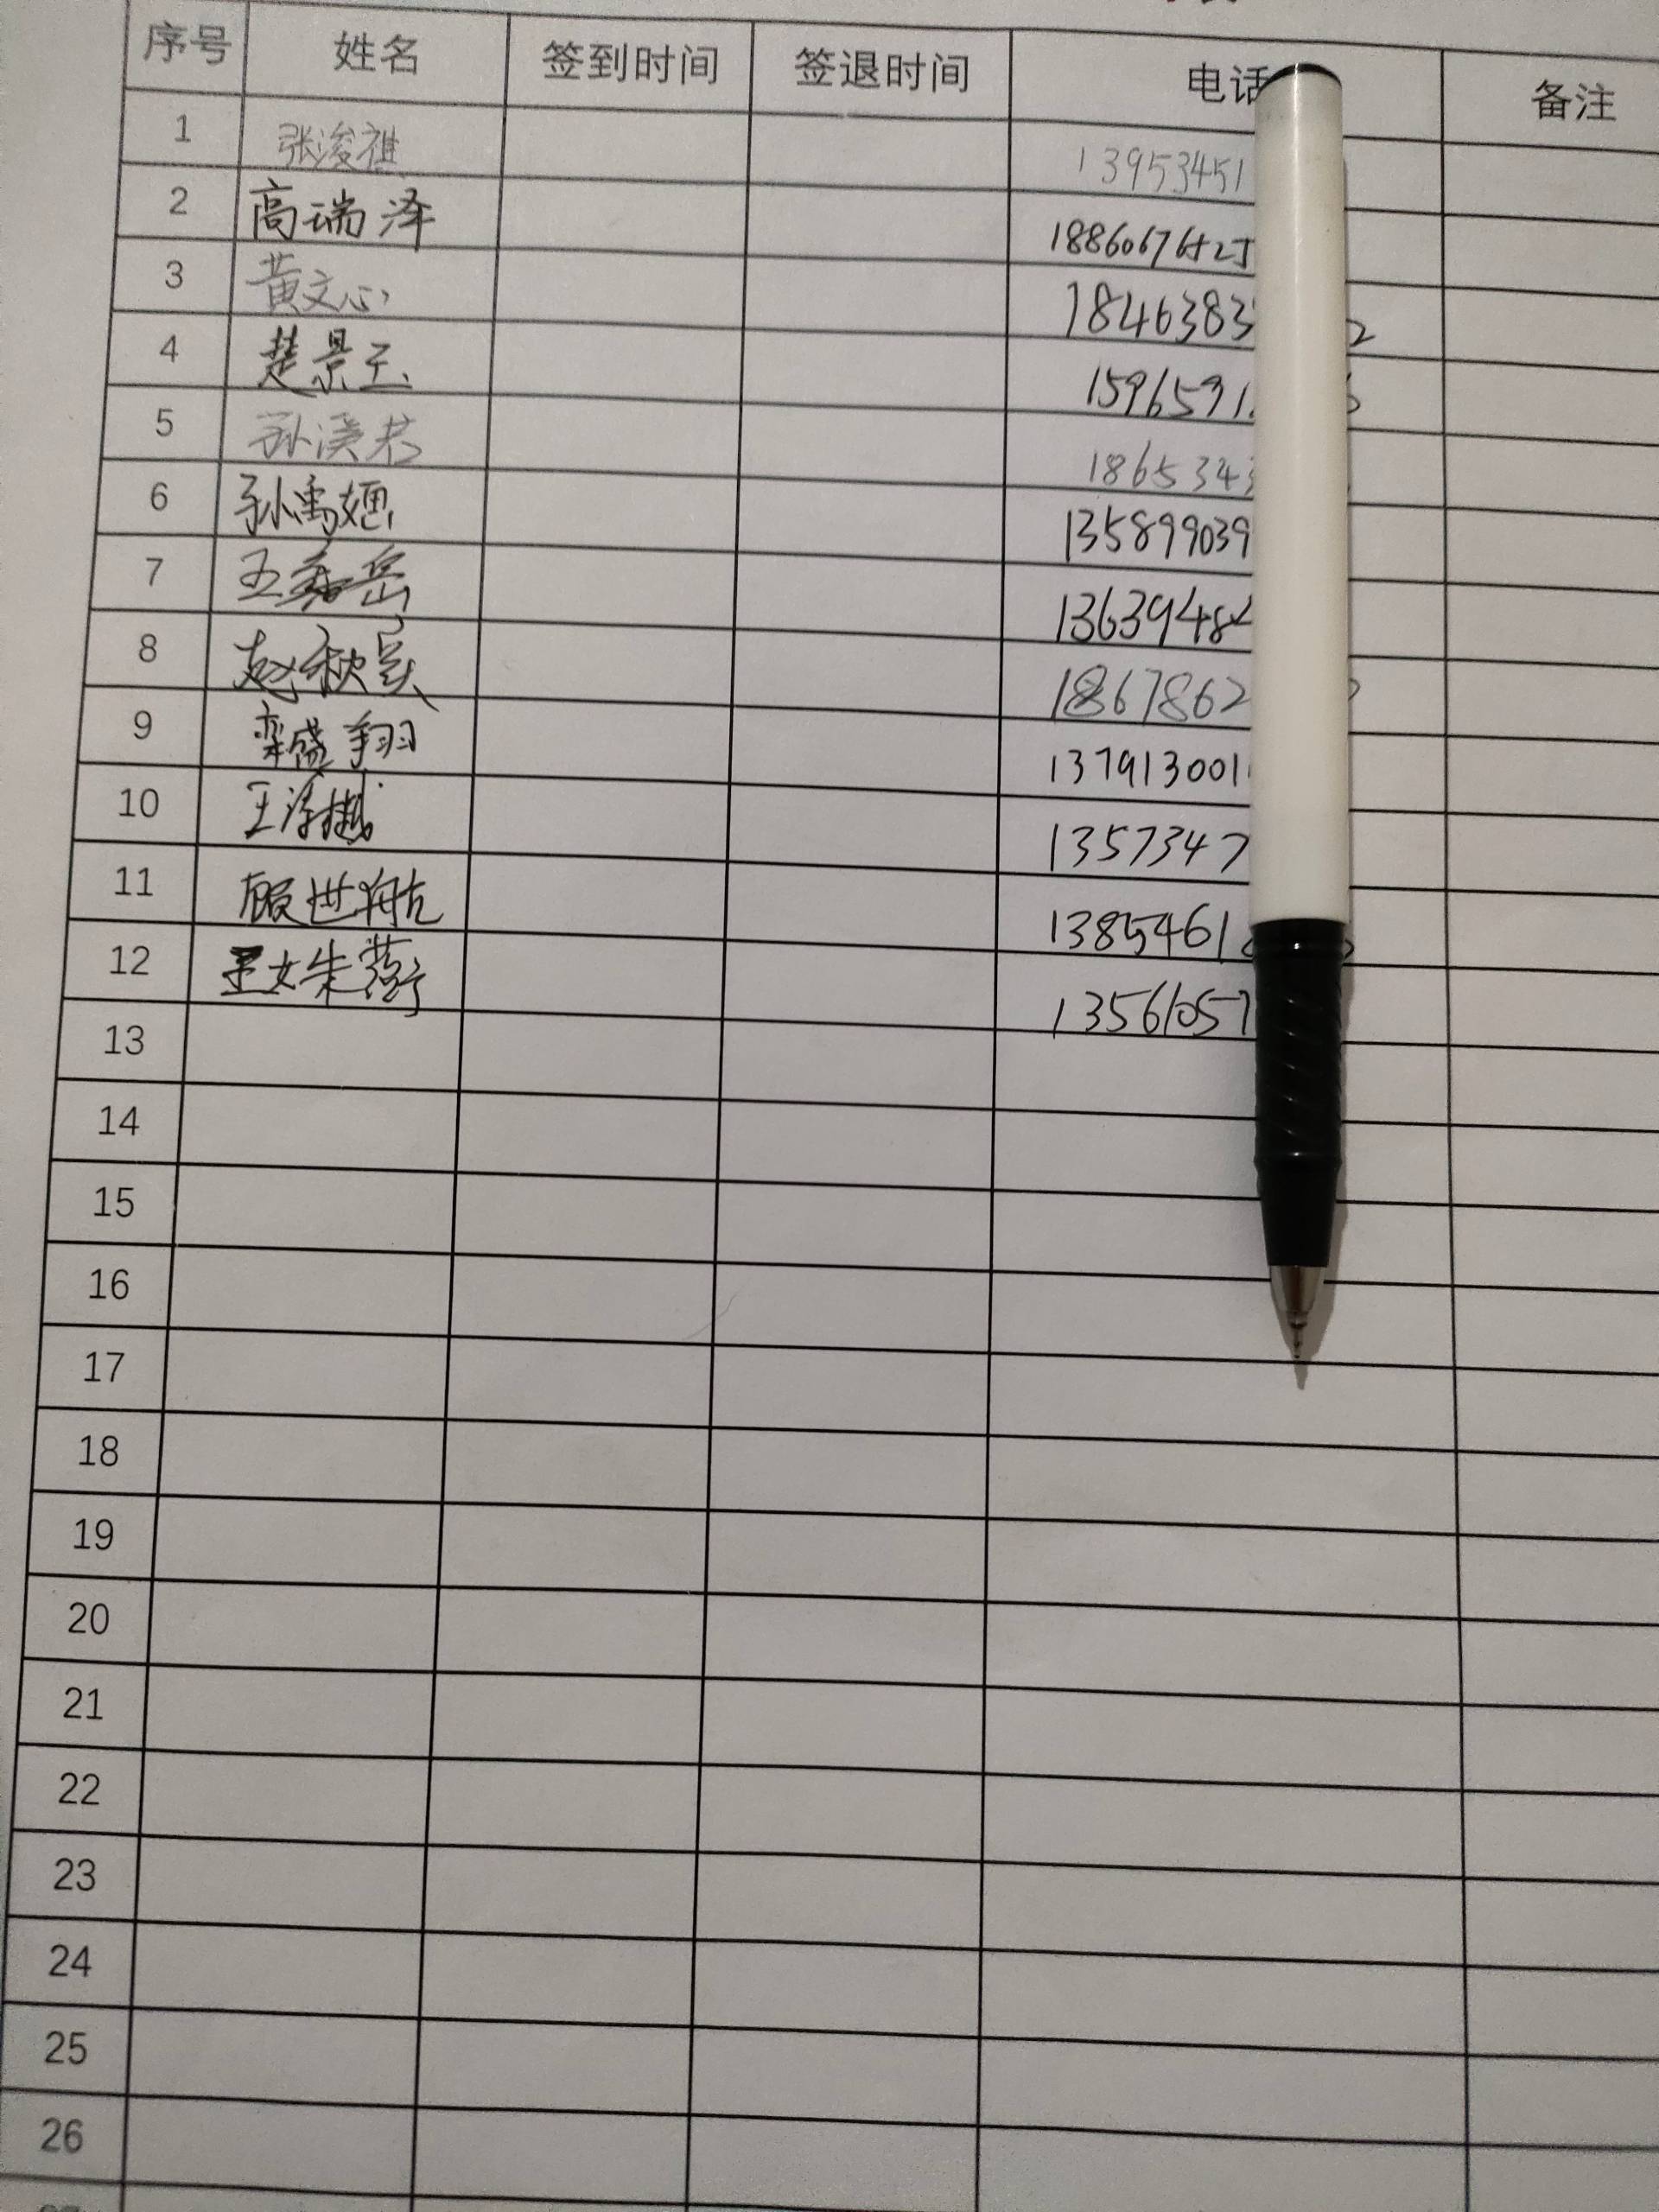 序号 姓名 签到时间 签退时间 电话 备注
1 张浚祺 13953451
2 高瑞泽 18860676525
3 黄文心 18463835 2
4 楚景玉 1596591
5 孙溪若 1865343
6 孙禹娅 135899039
7 王 岳 13639484
8 赵秋昊 1867862
9 栾盛翔 137913001
10 王泽樾 1357347
11 顾世航 1385461
12 王姝蘅 13561057
13
14
15
16
17
18
19
20
21
22
23
24
25
26